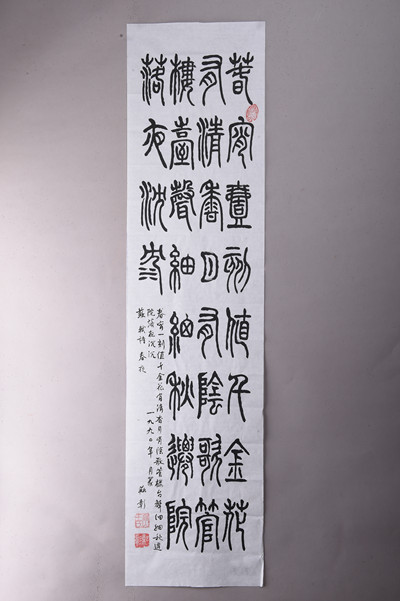 春宵壹刻值千金花
有清香月有陰歌管
樓臺聲細細秋遷院
落夜沈沈
春宵一刻值千金花有清香月有陰歌管樓台聲細細秋遷
院落夜沉沉
蘇軾詩 春夜
一九九〇年 月